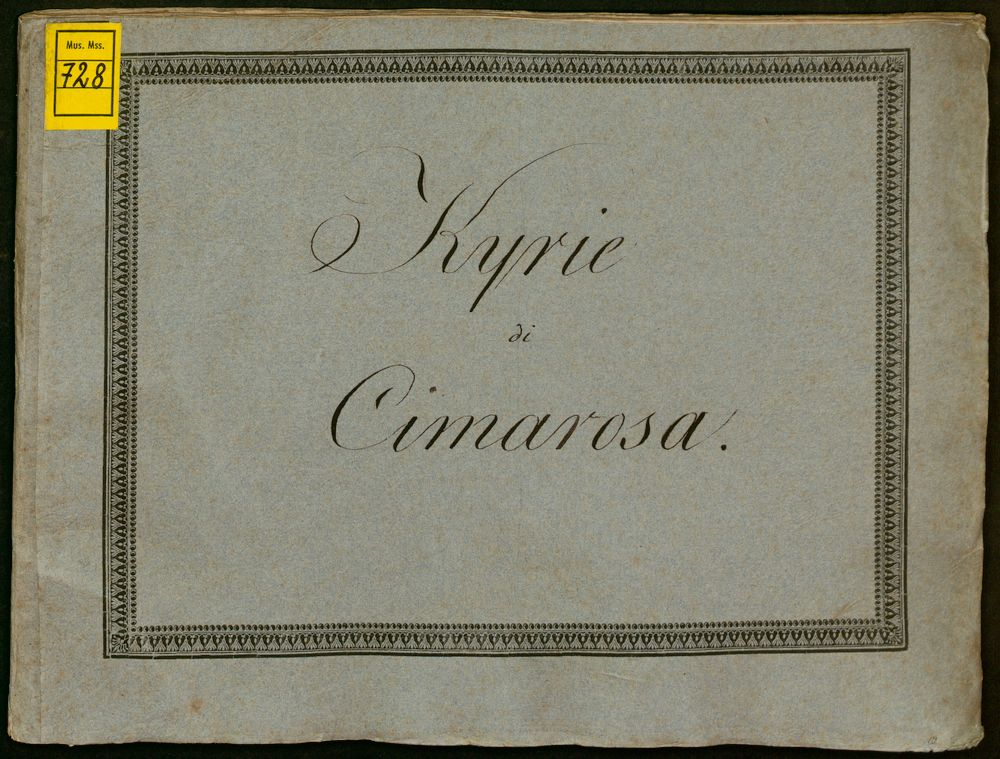 Mus. Mss.
728
Kyrie
di
Cimarosa.